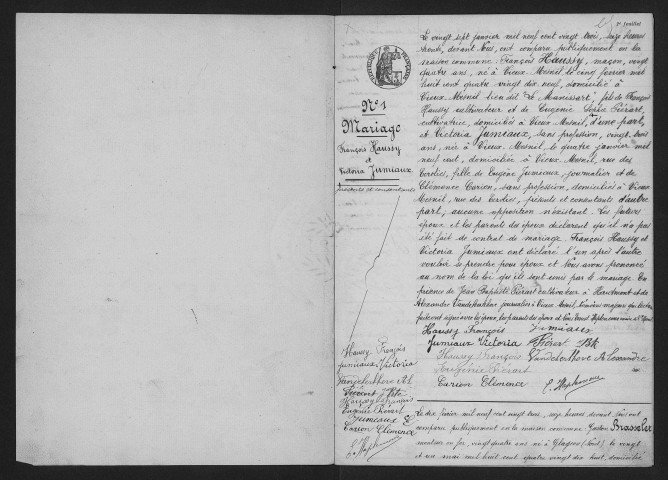 2e feuillet
N° 1
Mariage
François Haussy
et
Victoria Jumiaux
présents et consentants
Le vingt sept janvier mil neuf cent vingt trois, seize heures
trente, devant Nous, ont comparu publiquement en la
maison commune: François Haussy, maçon, vingt
quatre ans, né à Vieux Mesnil le cinq janvier mil
huit cent quatre vingt dix neuf, domicilié à
Vieux Mesnil lieu dit Le Manissart, fils de François
Haussy cultivateur et de Eugénie Piérart,
cultivatrice, domiciliés à Vieux Mesnil, d'une part,
et Victoria Jumiaux, sans profession, vingt trois
ans, née à Vieux Mesnil le quatre janvier mil
neuf cent, domiciliée à Vieux Mesnil, rue des
Cordiers, fille de Eugène Jumiaux journalier et de
Clémence Carion, sans profession, domiciliés à Vieux
Mesnil, rue des Cordiers, présents et consentants d'autre
part, aucune opposition n'existant. Les futurs
époux et les parents des époux déclarent qu'il n'a pas
été fait de contrat de mariage. François Haussy et
Victoria Jumiaux ont déclaré l'un après l'autre
vouloir se prendre pour époux et Nous avons prononcé
au nom de la loi qu'ils sont unis par le mariage. En
présence de Jean Baptiste Piérart cultivateur à Hautmont et de
Alexandre Vandelenhove journalier à Vieux Mesnil, témoins majeurs qui, lecture
faite ont signé avec les époux, les parents des époux et Nous
Haussy François Jumiaux
Jumiaux Victoria Piérart Bte
Haussy François Vandelenhove Alexandre
Eugénie Piérart
Carion Clémence
Haussy François
Jumiaux Victoria
Vandelenhove Al
Piérart Bte
Haussy François
Eugénie Piérart
Jumeaux E
Carion Clémence
Le dix février mil neuf cent vingt trois, seize heures devant Nous ont
comparu publiquement en la maison commune: Gaston Brasselet
en fer, vingt quatre ans né à Glageon (Nord) le vingt
et un mai mil huit cent quatre vingt dix huit, domicilié